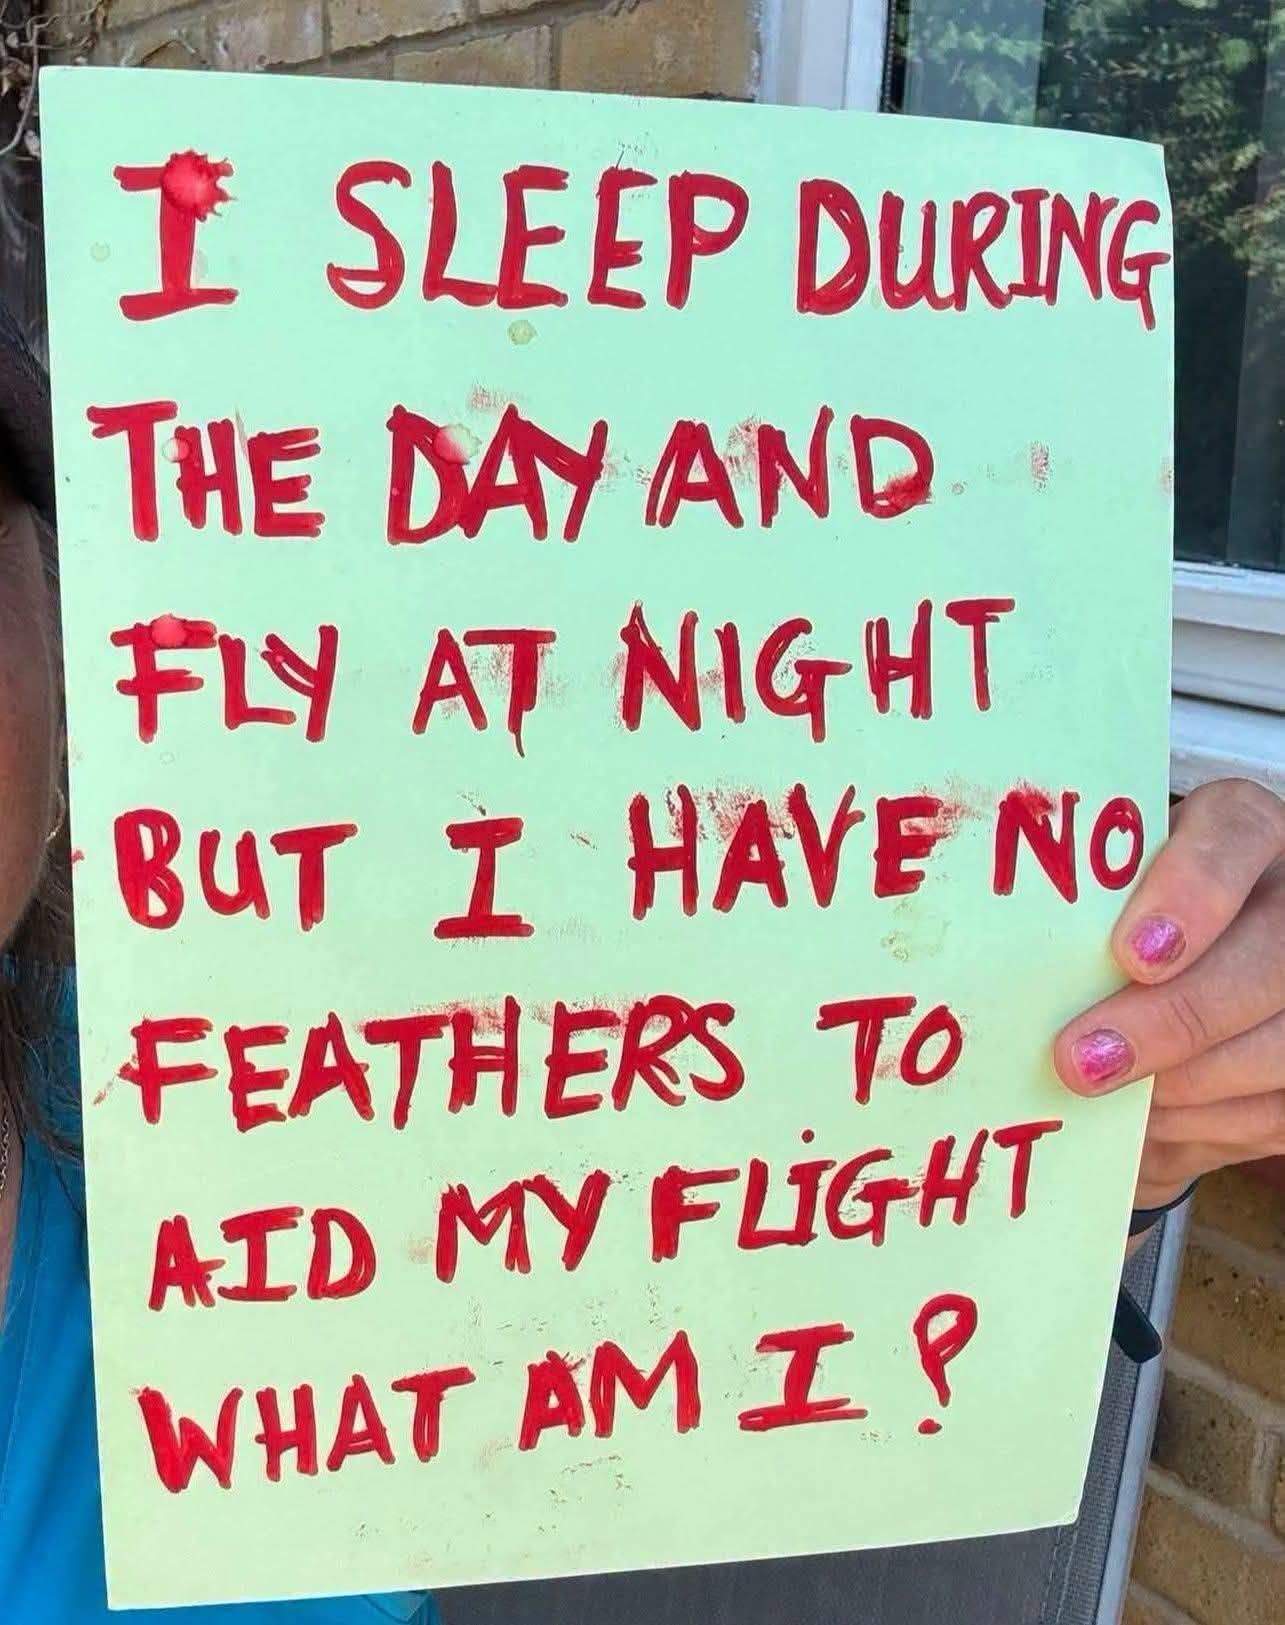 I SLEEP DURING
THE DAY AND
FLY AT NIGHT
BUT I HAVE NO
FEATHERS TO
AID MY FLiGHT
WHAT AM I?